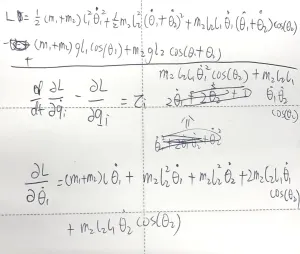 L = ½ (m₁+m₂) l₁² θ̇₁² + ½ m₂ l₂² (θ̇₁ + θ̇₂)² + m₂ l₂ l₁ θ̇₁ (θ̇₁ + θ̇₂) cos(θ₂)
+ (m₁+m₂) g l₁ cos(θ₁) + m₂ g l₂ cos(θ₁+θ₂)
m₂ l₂ l₁ θ̇₁² cos(θ₂) + m₂ l₂ l₁
d/dt ∂L/∂q̇ᵢ - ∂L/∂qᵢ = τᵢ
θ̇₁ θ̇₂
cos(θ₂)
∂L/∂θ̇₁ = (m₁+m₂) l θ̇₁ + m₂ l₂² θ̇₁ + m₂ l₂² θ̇₂ + 2 m₂ l₂ l₁ θ̇₁
cos(θ₂)
+ m₂ l₂ l₁ θ̇₂ cos(θ₂)